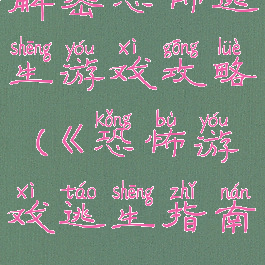 解密恐怖逃
shēng yóu xì gōng lüè
生游戏攻略
kǒng bù yóu
(《恐怖游
xì táo shēng zhǐ nán
戏逃生指南